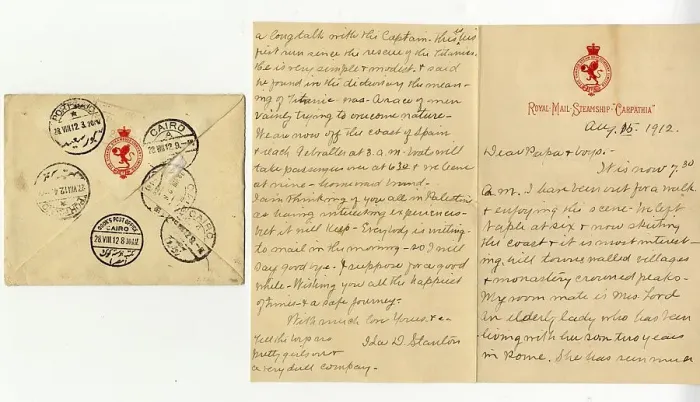 PORT SAID
28 VIII 12 3. 10 AM
CAIRO
A
28 VIII 12. 9
27 VIII 12. 4
COOK'S POST OFFICE
CAIRO
28 VIII 12 8 30AM
CAIRO
a long talk with the Captain. This is his
first run since the rescue of the Titanic.
He is very simple & modest. & said
he found in the dictionary the mean-
ing of Titanic was A race of men
vainly trying to overcome nature-
We are now off the coast of Spain
& reach Gebralter at 3. a.m. will
take passengers on at 6 30 & we leave
at nine - homeward bound-
I am thinking of you all in Palestine
as having interesting experiences-
but it will keep - Everybody is writing
to mail in the morning - so I will
say good bye. I suppose for a good
while - Wishing you all the happiest
of times - & a safe journey-
With much love Yours. &c-
Ida D Stanton
Tell the boys no
pretty girls on &
a very dull company-
ROYAL-MAIL-STEAMSHIP "CARPATHIA"
Aug. 15. 1912.
Dear Papa & boys.-
It is now 7. 30
a. m. I have been out for a walk
& enjoying the scene. We left
Naples at six & now skirting
the coast & it is most interest-
ing. hill towns walled villages
& monastery crowned peaks-
My room mate is Mrs Lord
an elderly lady who has been
living with her son two years
in Rome. She has seen much